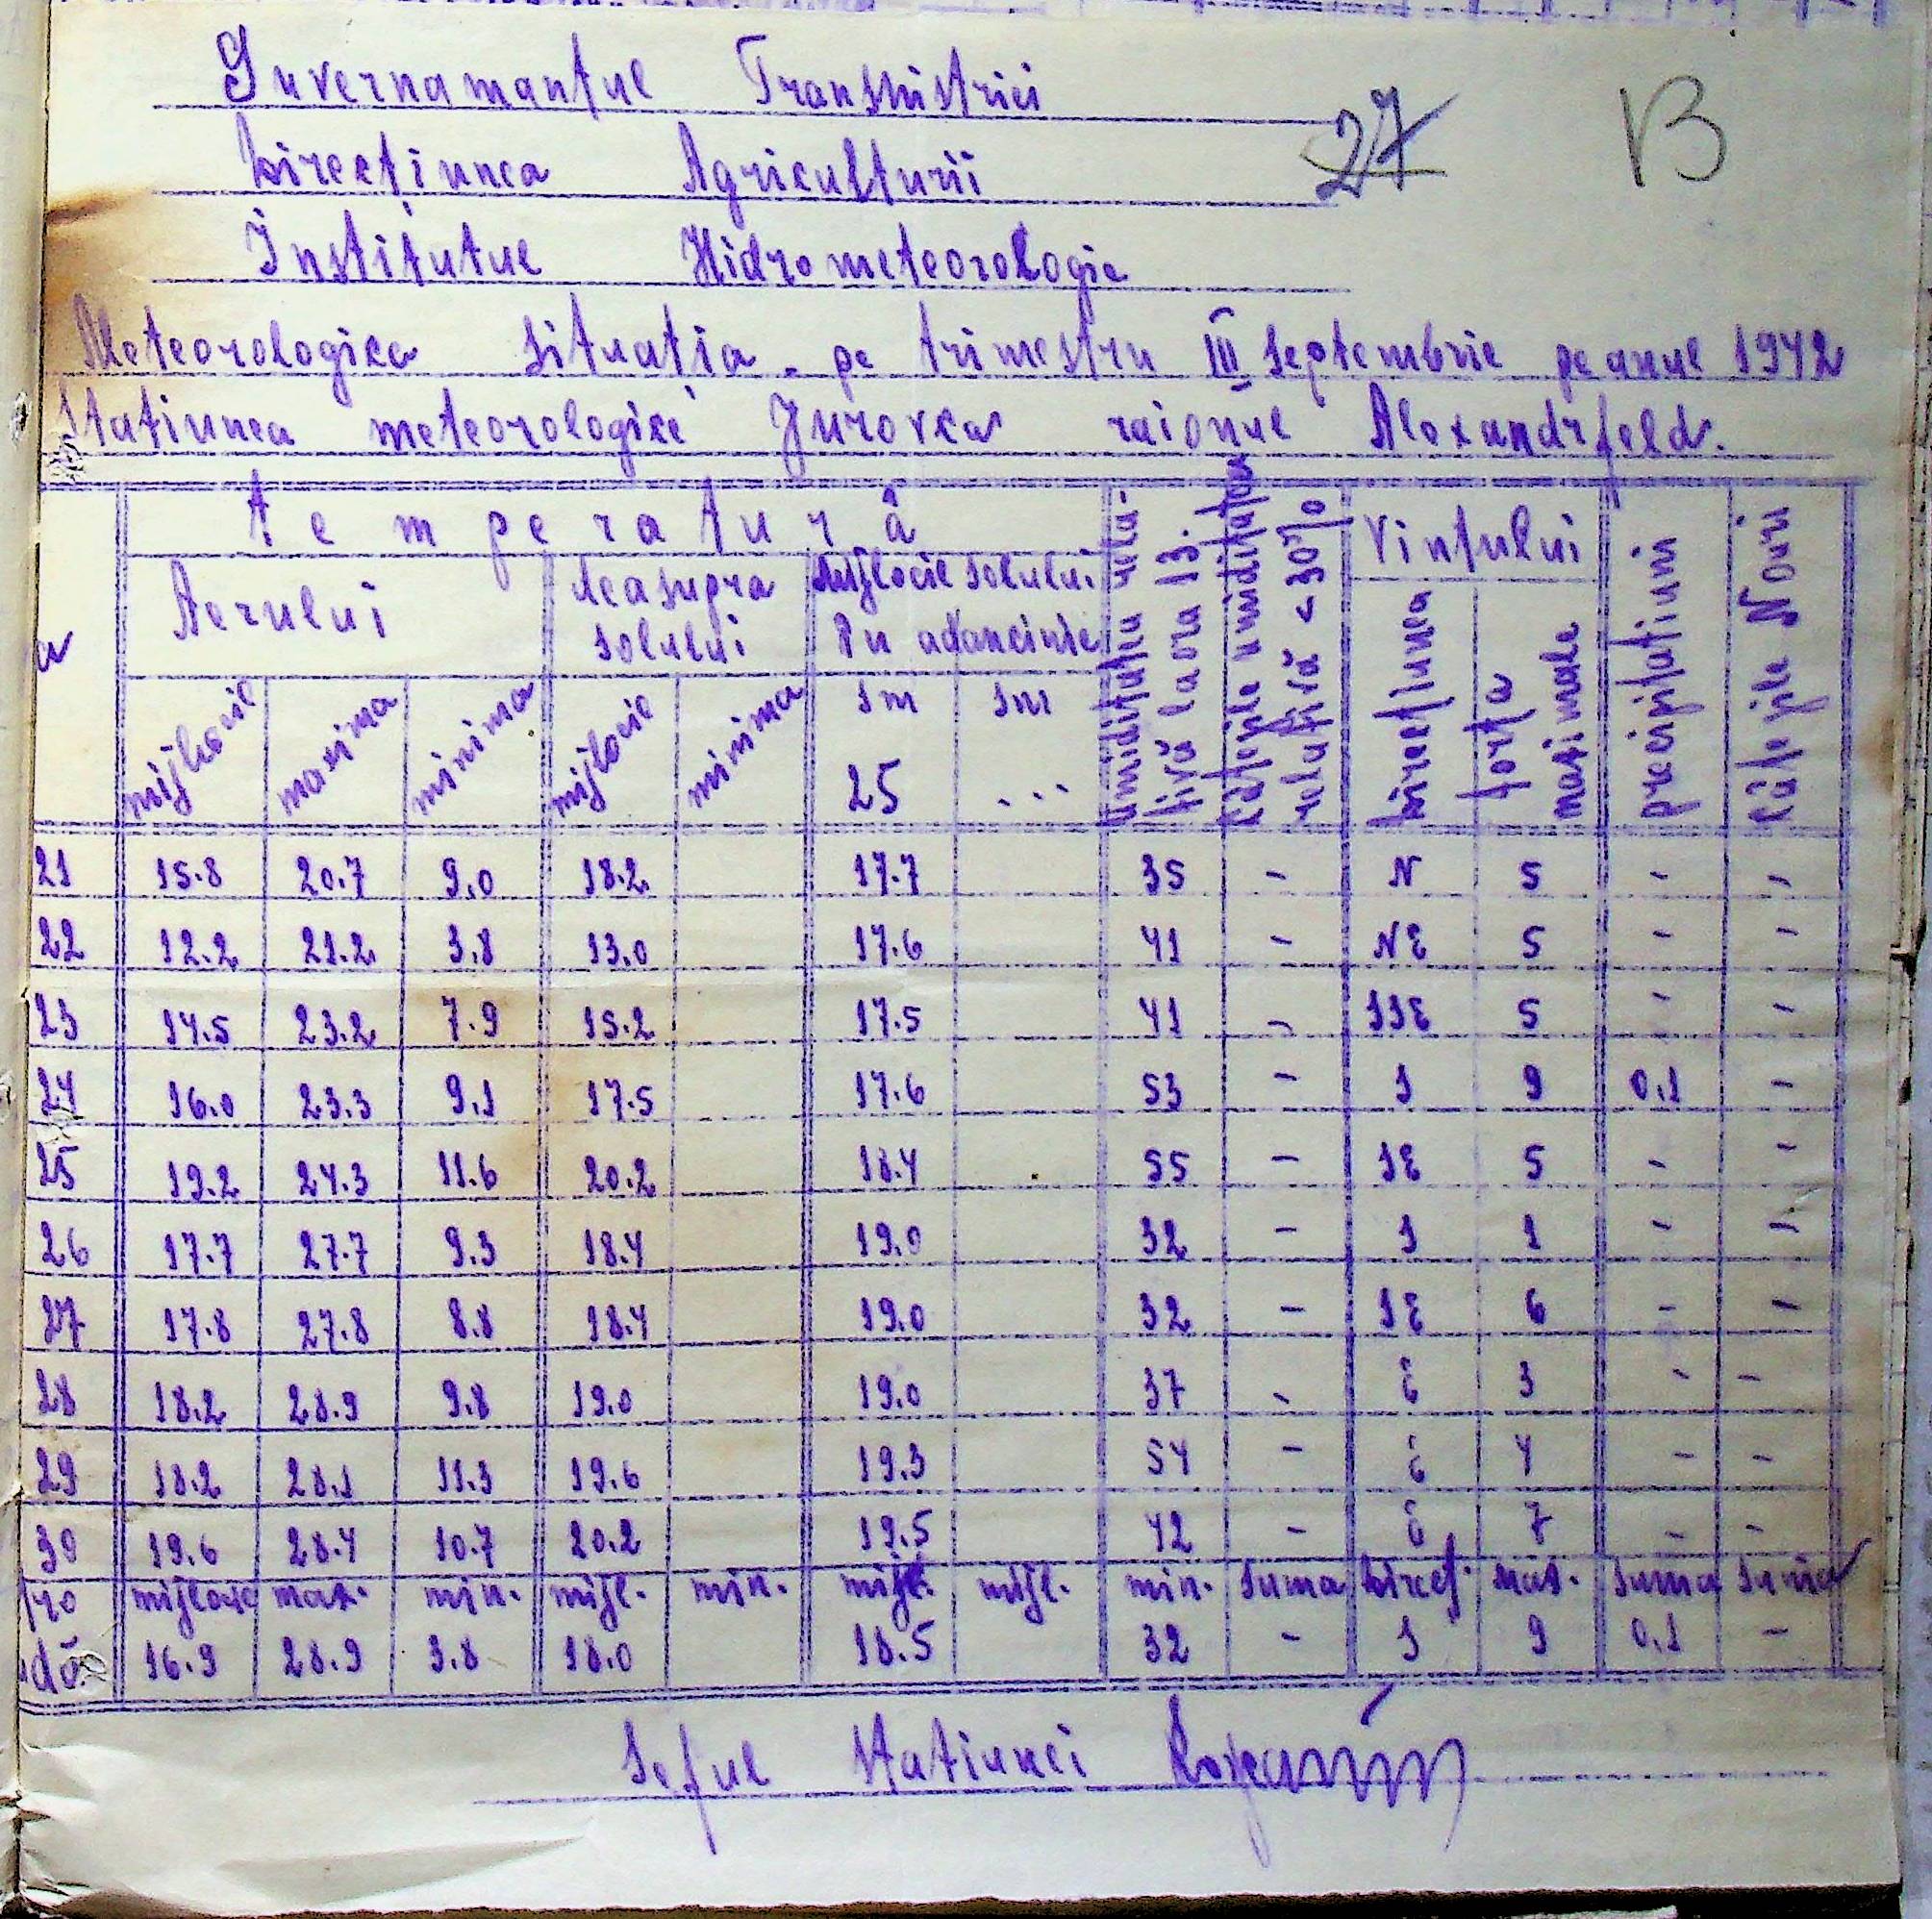 Guvernamantul Transnistriei
27 B
Direcțiunea Agriculturii
Institutul Hidrometeorologic
Meteorologica situatia - pe trimestru III septembrie pe anul 1942
Statiunea meteorologice Jurovca raionul Alexandrfeld.
temperatură
Aerului
deasupra solului
Mijlocie solului
În adancime
Umiditatea relativă la ora 13.
Câte zile umiditatea relativă <30%
Vintului
precipitatiuni
Câte zile Nouri
a
mijlocie maxima minima mijlocie minima sm 25 sm ...
Directiunea forta maximale
21 15.8 20.7 9.0 18.2 17.7 35 - N 5 - -
22 12.2 21.2 3.8 13.0 17.6 41 - NE 5 - -
23 14.5 23.2 7.9 15.2 17.5 41 - SSE 5 - -
24 16.0 23.3 9.1 17.5 17.6 53 - S 9 0.1 -
25 19.2 24.3 11.6 20.2 18.4 55 - SE 5 - -
26 17.7 27.7 9.3 18.4 19.0 32 - S 1 - -
27 17.8 27.8 8.8 18.4 19.0 32 - SE 6 - -
28 18.2 28.9 9.8 19.0 19.0 37 - E 3 - -
29 18.2 28.1 11.3 19.6 19.3 54 - E 4 - -
30 19.6 28.4 10.7 20.2 19.5 42 - E 7 - -
mijlocie max. min. mijl. min. mijl. mijl. min. suma Direct. max. suma suma
16.9 28.9 3.8 18.0 18.5 32 - S 9 0.1 -
Seful Statiunei